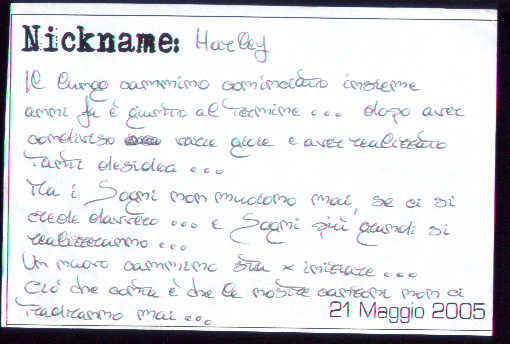 Nickname: Harley
Il lungo cammino cominciato insieme
anni fa è giunto al termine ... dopo aver
condiviso varie gioie e aver realizzato
tanti desideri ...
Ma i Sogni non muoiono mai, se ci si
crede davvero ... e Sogni più grandi si
realizzeranno ...
Un nuovo cammino sta x iniziare ...
Ciò che conta è che le nostre canzoni non ci
tradiranno mai ...
21 Maggio 2005